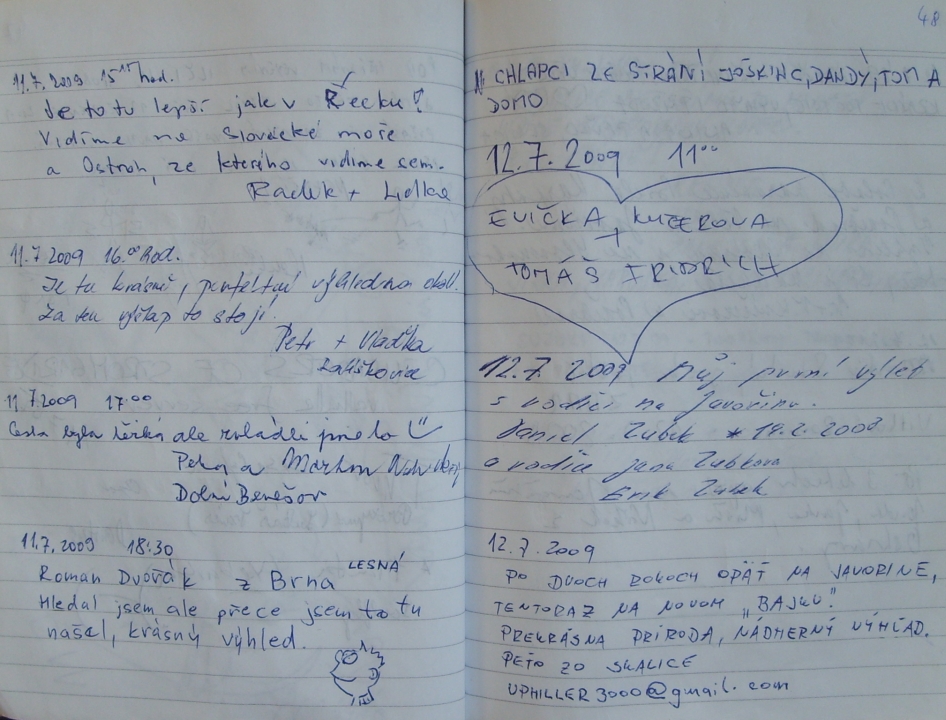 11.7. 2009 15¹⁵ hod.
Je to tu lepší jak v Řecku?
Vidíme na Slovácké moře
a Ostroh, ze kterého vidíme sem.
Radek + Lidka
11.7 2009 16.⁰⁰ hod.
Je tu krásně, perfektní výhled na okolí.
Za ten výšlap to stojí.
Petr + Vlaďka
11.7.2009 17⁰⁰
Cesta byla těžká ale zvládli jsme to
a Martin
Dolní Benešov
11.7.2009 18:30
Roman Dvořák z Brna LESNÁ
Hledal jsem ale přece jsem to tu
našel, krásný výhled.
48
CHLAPCI ZE STRÁNÍ JOŠKINC, DANDÝ, TOM A
DOMO
12.7.2009 11⁰⁰
EVIČKA KUČEROVA
+
TOMÁŠ FRIDRICH
12.7. 2009 Můj první výlet
s rodiči na Javořinu.
Daniel Zubek * 19.2. 2008
a rodiče Jana Zubkova
Erik Zubek
12.7.2009
PO DVOCH ROKOCH OPÄŤ NA JAVORINE,
TENTORAZ NA NOVOM „BAJKU".
PREKRÁSNA PRÍRODA, NÁDHERNÝ VÝHĽAD.
PEŤO ZO SKALICE
UPHILLER3000@gmail.com